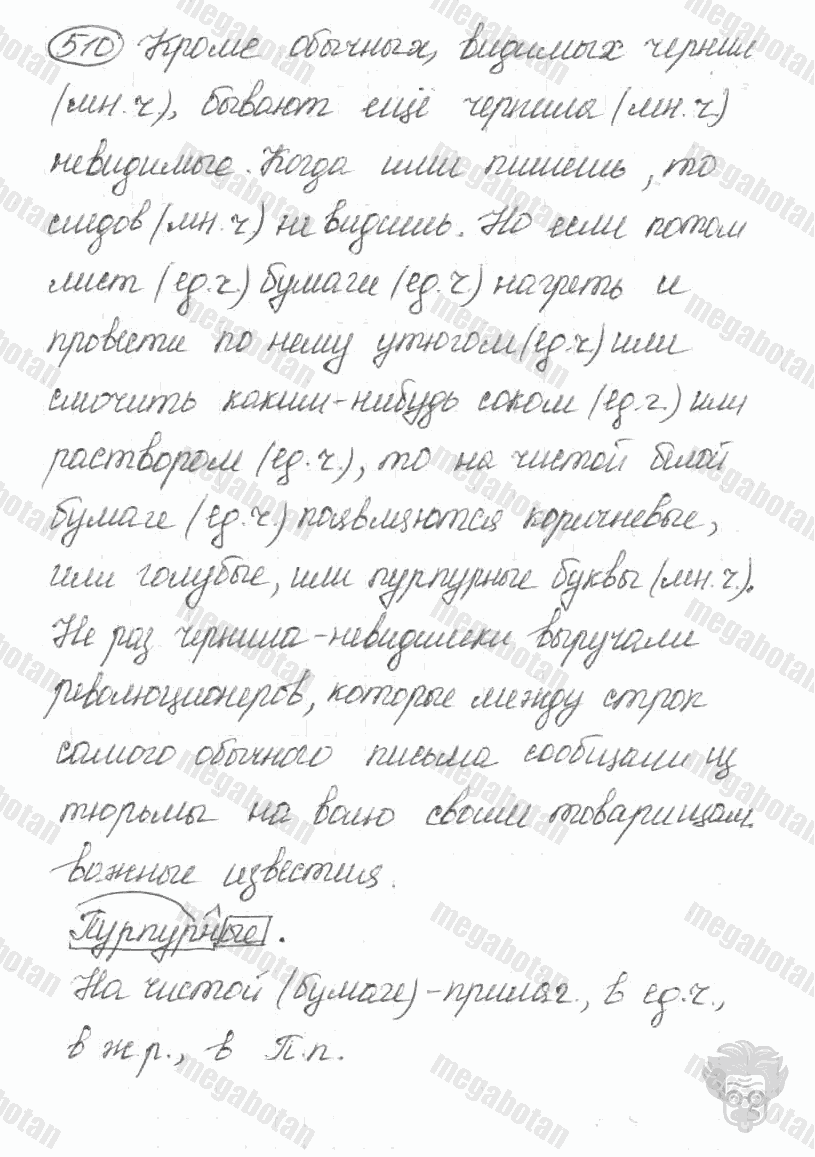 510 Кроме обычных, видимых чернил
(мн.ч), бывают ещё чернила (мн.ч)
невидимые. Когда ими пишешь, то
следов (мн.ч) не видишь. Но если потом
лист (ед.ч.) бумаги (ед.ч.) нагреть и
провести по нему утюгом (ед.ч) или
смочить каким-нибудь соком (ед.ч.) или
раствором (ед.ч.), то на чистой белой
бумаге (ед.ч.) появляются коричневые,
или голубые, или пурпурные буквы (мн.ч.).
Не раз чернила-невидимки выручали
революционеров, которые между строк
самого обычного письма сообщали из
тюрьмы на волю своим товарищам
важные известия.
Пурпурные.
На чистой (бумаге) - прилаг., в ед.ч.,
в ж.р., в П.п.
megabotan